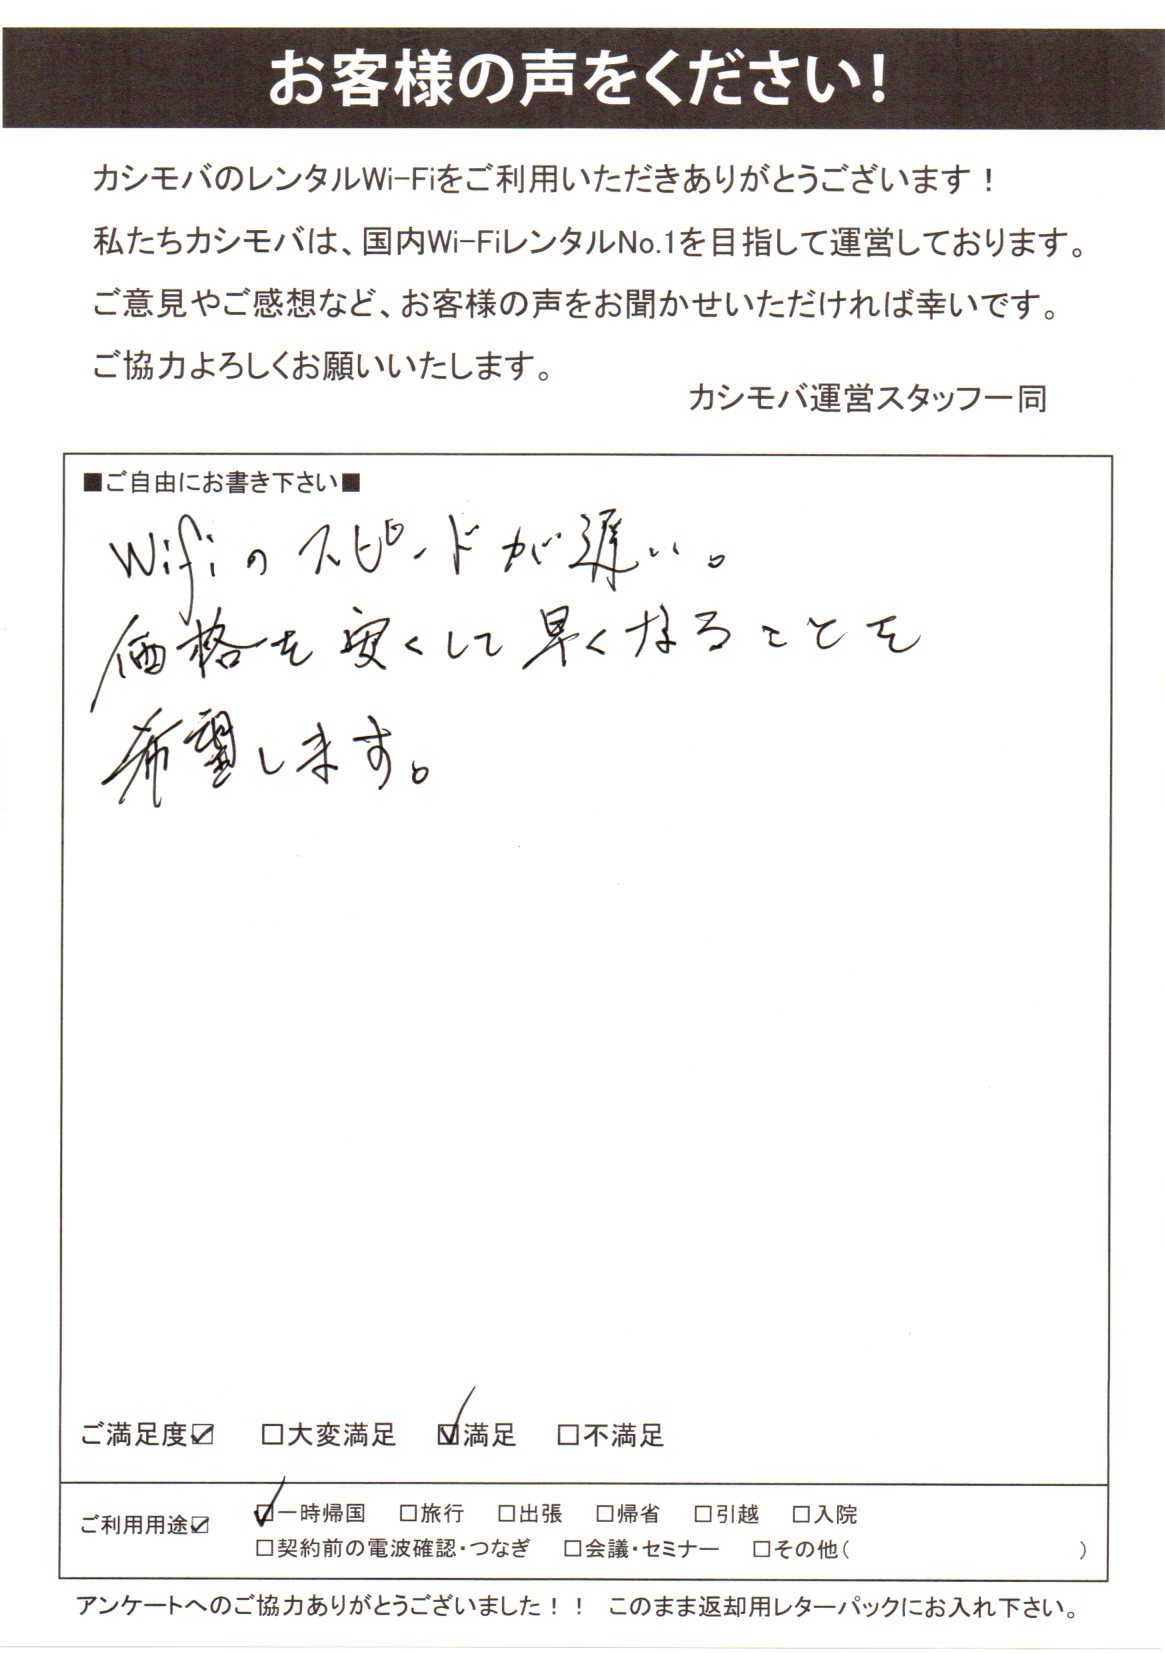 お客様の声をください!
カシモバのレンタルWi-Fiをご利用いただきありがとうございます!
私たちカシモバは、国内Wi-FiレンタルNo.1を目指して運営しております。
ご意見やご感想など、お客様の声をお聞かせいただければ幸いです。
ご協力よろしくお願いいたします。
カシモバ運営スタッフ一同
■ご自由にお書き下さい■
Wifiのスピードが遅い。
価格を安くして早くなることを
希望します。
ご満足度☑ □大変満足 ☑満足 □不満足
ご利用用途☑ ☑一時帰国 □旅行 □出張 □帰省 □引越 □入院
□契約前の電波確認・つなぎ □会議・セミナー □その他( )
アンケートへのご協力ありがとうございました!! このまま返却用レターパックにお入れ下さい。